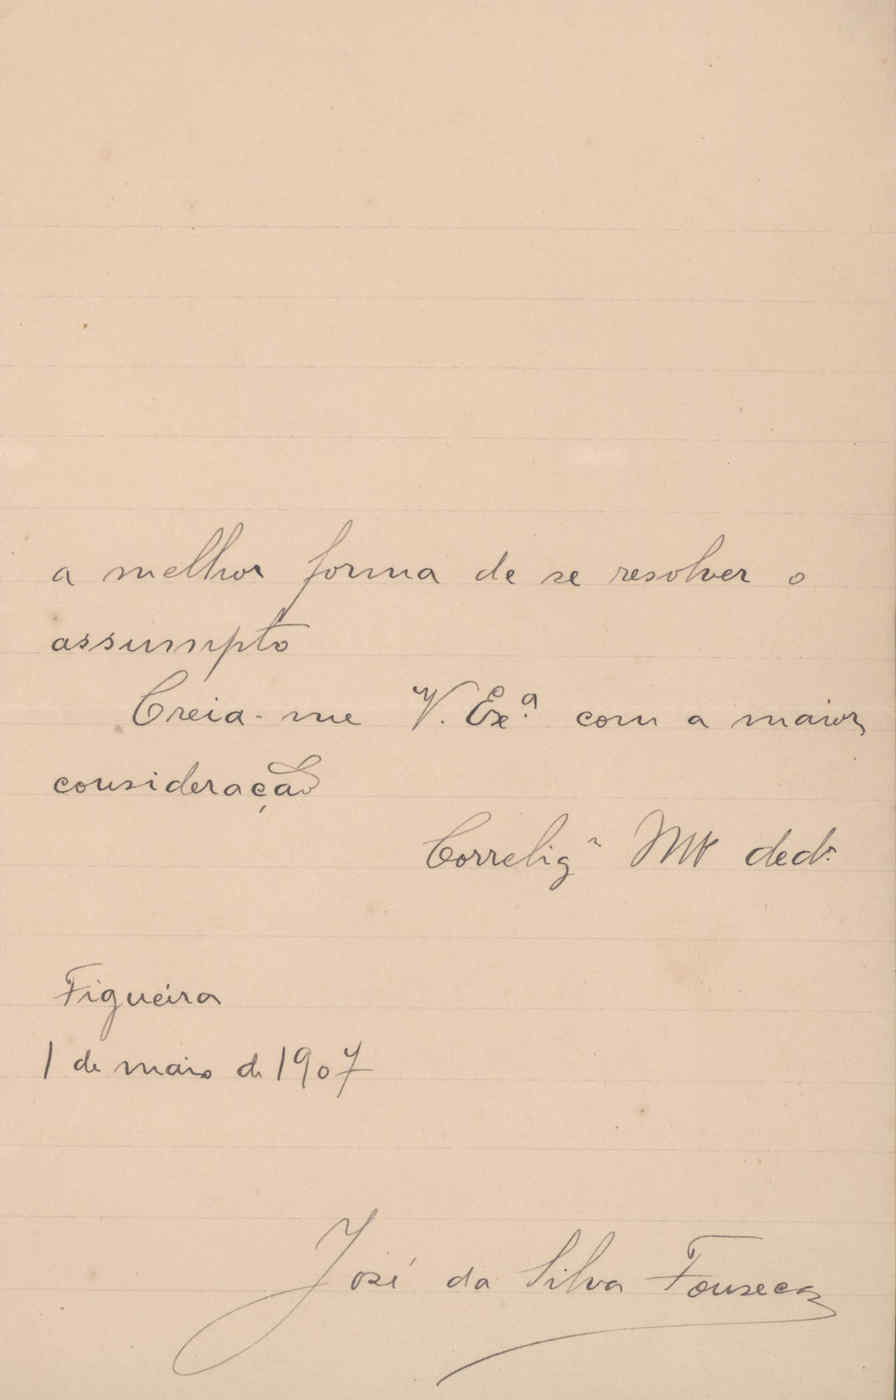 a melhor forma de se resolver o
assumpto
Creia-me V. Exª. com a maior
consideração
Correligº Mtº dedº
Figueira
1 de maio de 1907
José da Silva Fonseca